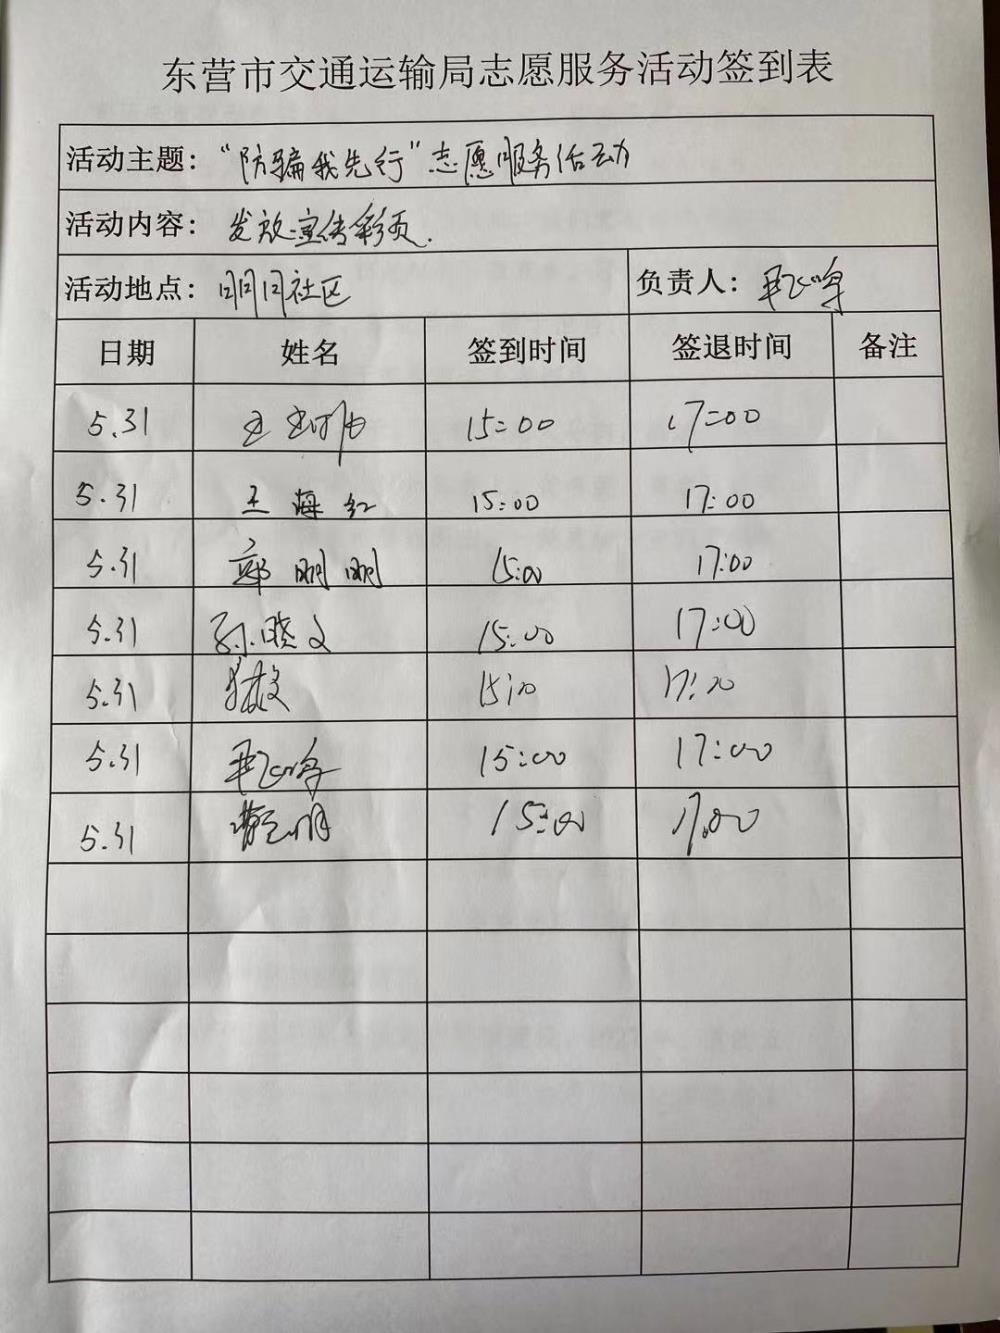 东营市交通运输局志愿服务活动签到表
活动主题："防骗我先行"志愿服务活动
活动内容：发放宣传彩页.
活动地点：明月社区 负责人：
日期 姓名 签到时间 签退时间 备注
5.31 15:00 17:00
5.31 王海红 15:00 17:00
5.31 郭明明 15:00 17:00
5.31 孙晓文 15:00 17:00
5.31 15:00 17:00
5.31 15:00 17:00
5.31 15:00 17:00